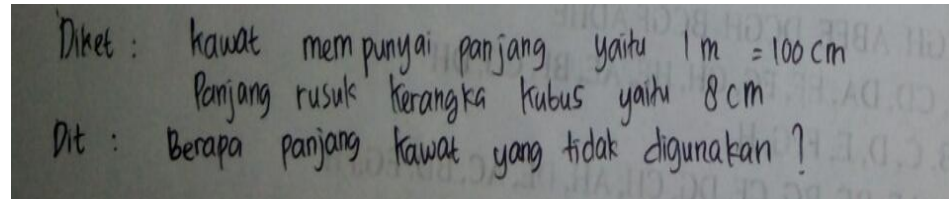 Diket : kawat mempunyai panjang yaitu 1 m = 100 cm
Panjang rusuk kerangka kubus yaitu 8 cm
Dit : Berapa panjang kawat yang tidak digunakan ?